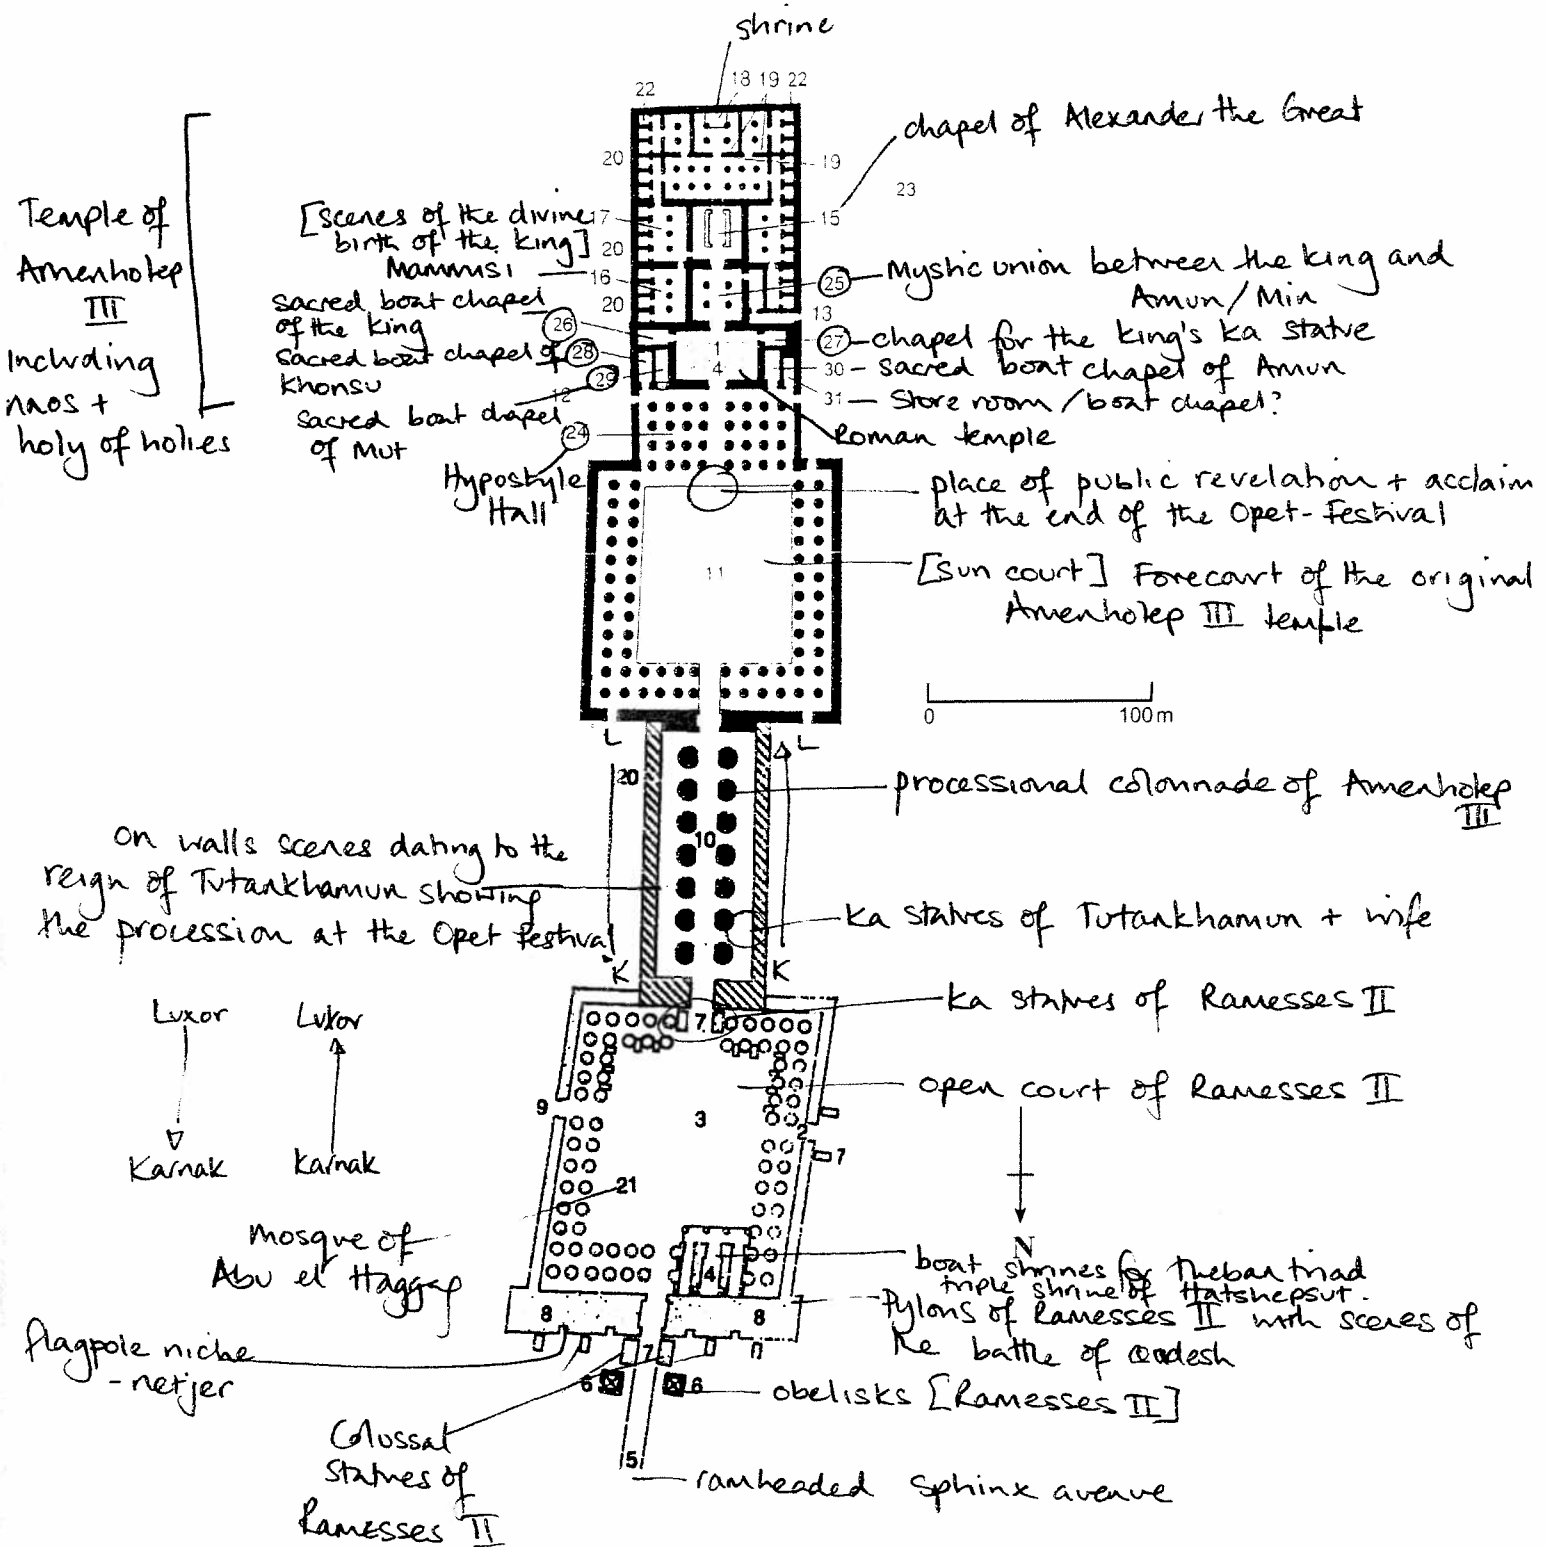 shrine
22
18 19 22
chapel of Alexander the Great
20
19
23
Temple of
Amenhotep
III
Including
naos +
holy of holies
[scenes of the divine
birth of the king]
Mammisi
17
20
15
16
20
25
Mystic union between the king and
Amun/Min
13
sacred boat chapel
of the king
26
27
chapel for the king's ka statue
sacred boat chapel of
Khonsu
28
1
4
30 - sacred boat chapel of Amun
29
12
31 - Store room / boat chapel?
sacred boat chapel
of Mut
24
Roman temple
Hypostyle
Hall
place of public revelation + acclaim
at the end of the Opet-Festival
11
[Sun court] Forecourt of the original
Amenhotep III temple
0 100m
L
L
20
processional colonnade of Amenhotep
III
10
On walls scenes dating to the
reign of Tutankhamun showing
the procession at the Opet Festival
Ka statues of Tutankhamun + wife
K
K
Ka statues of Ramesses II
7
Luxor
Luxor
Karnak
Karnak
open court of Ramesses II
9
3
2
7
21
N
Mosque of
Abu el Haggag
boat shrines for Theban triad
triple shrine of Hatshepsut.
4
Pylons of Ramesses II with scenes of
the battle of Qadesh
8
8
flagpole niche
- netjer
7
6
6
obelisks [Ramesses II]
Colossal
statues of
Ramesses II
5
ramheaded sphinx avenue